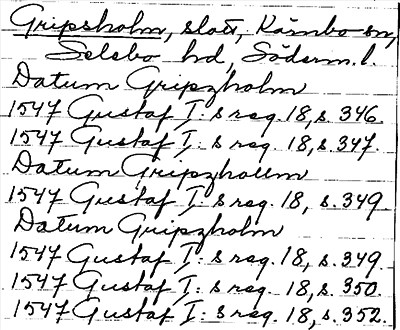 Gripsholm, slott, Kärnbo sn,
Selebo hd, Söderm. l.
Datum Gripzholm
1547 Gustaf I:s reg. 18, s. 346.
1547 Gustaf I:s reg. 18, s. 347.
Datum Gripzhollm
1547 Gustaf I:s reg. 18, s. 349
Datum Gripzholm
1547 Gustaf I:s reg. 18, s. 349.
1547 Gustaf I:s reg. 18, s. 350.
1547 Gustaf I:s reg. 18, s. 352.